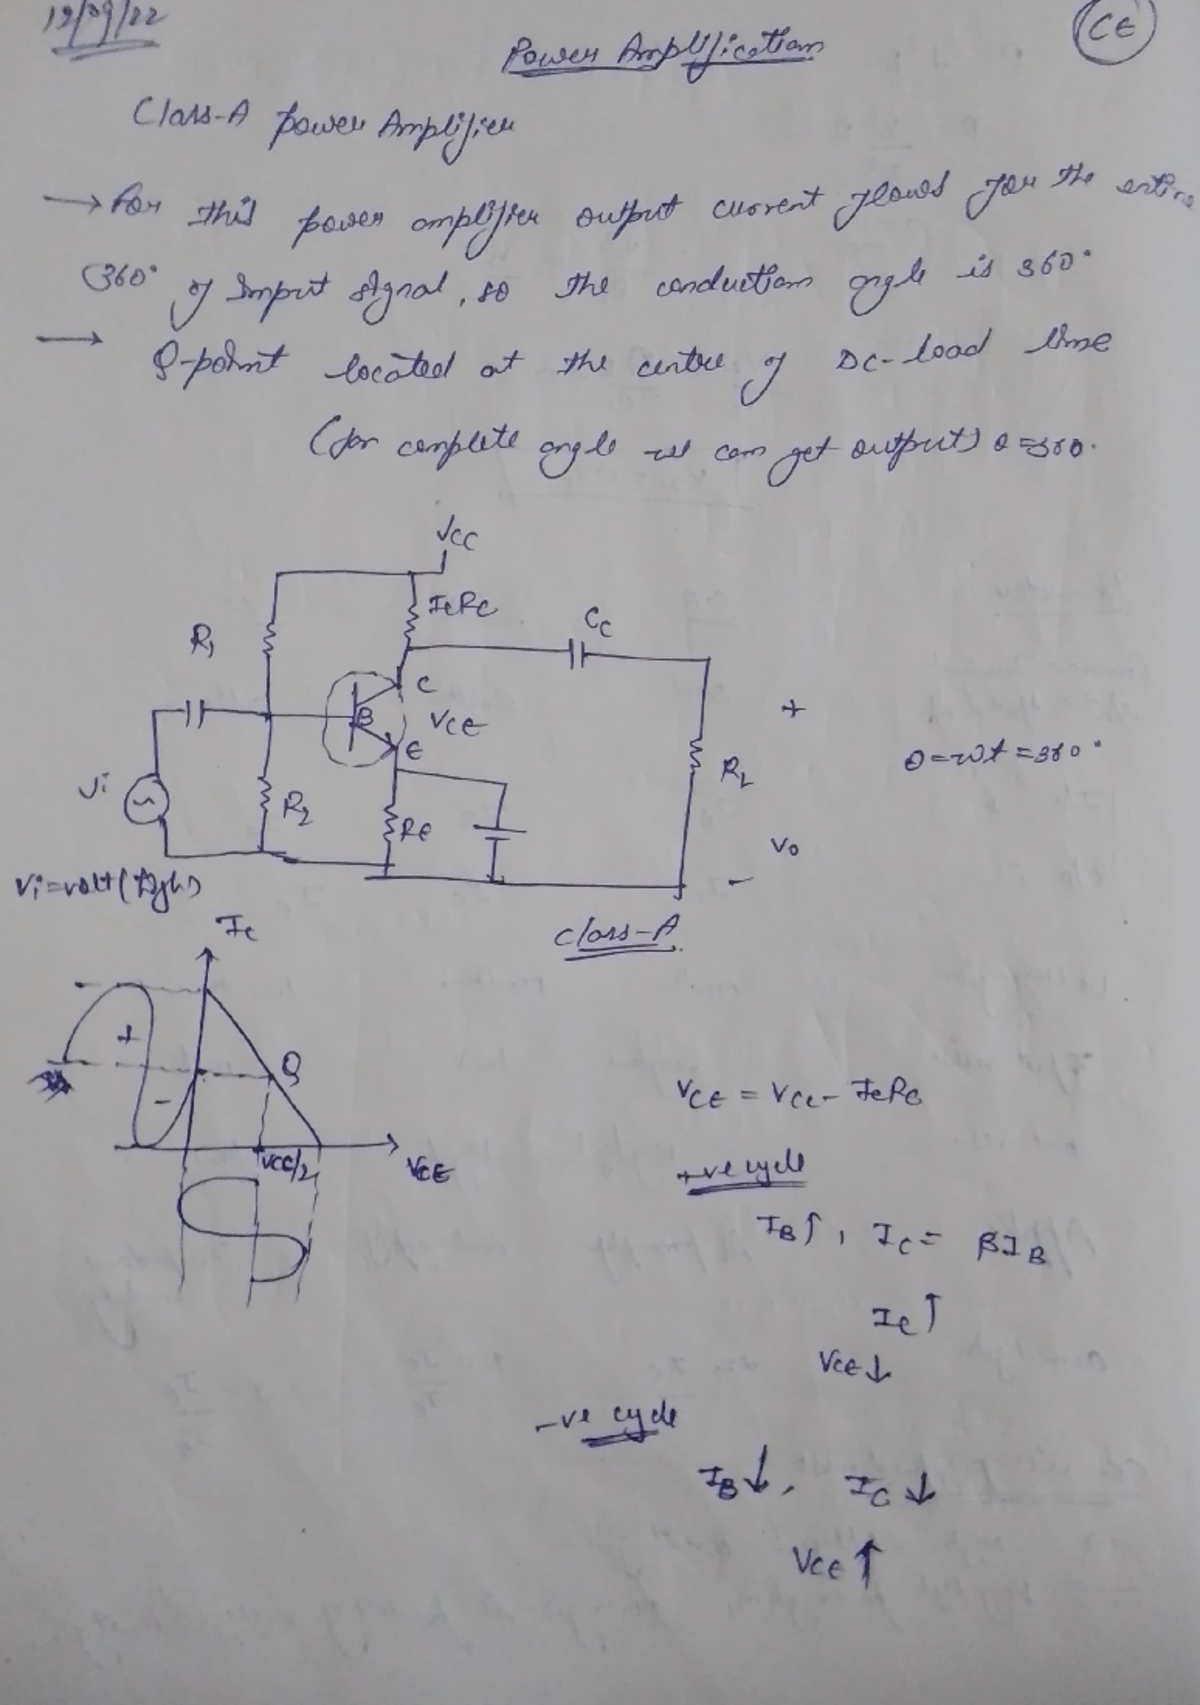 19/09/22
CE
Power Amplification
Class-A power Amplifier
→ For this power amplifier output current flows for the entire
360° of Input signal, so the conduction angle is 360°
→ Q-point located at the centre of DC-load line
(for complete angle we can get output) θ=360.
VCC
ICRC
CC
R1
C
B
VCE
E
+
θ=wt=360°
RL
Vi
R2
RE
Vo
-
Vi=volt(high)
Class-A
IC
+
Q
-
VCC/2
VCE
VCE = VCC - ICRC
+ve cycle
IB↑, IC = βIB
IC↑
VCE↓
-ve cycle
IB↓, IC↓
VCE↑